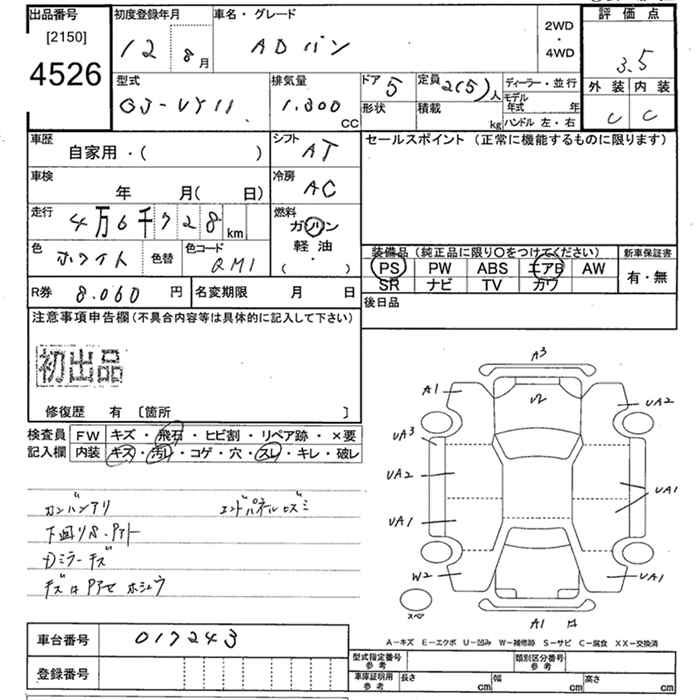 出品番号 [2150] 4526
初度登録年月 12 8月
車名・グレード ADバン
2WD・4WD
評価点 3.5
外装 C 内装 C
型式 GJ-VY11
排気量 1.300 CC
ドア 5
形状
定員 2(5)人
積載 kg
ディーラー・並行
モデル年式 年
ハンドル 左・右
車歴 自家用・( )
シフト AT
セールスポイント (正常に機能するものに限ります)
車検 年 月( 日)
冷房 AC
走行 4万6千728km
燃料 ガソリン 軽油 ( ・ )
色 ホワイト
色替
色コード QM1
装備品 (純正品に限り○をつけてください)
PS PW ABS エアB AW
SR ナビ TV カワ
新車保証書 有・無
R券 8.060円
名変期限 月 日
後日品
注意事項申告欄 (不具合内容等は具体的に記入して下さい)
初出品
修復歴 有 [箇所 ]
検査員記入欄
FW キズ・飛石・ヒビ割・リペア跡・×要
内装 キズ・汚レ・コゲ・穴・スレ・キレ・破レ
ガンバンアリ
エンドパネルヒズミ
下回りS.Pアト
Dミラーキズ
A3
A1
UA2
UA3
UA2
UA1
UA1
W2
UA1
スペア
A1
A-キズ E-エクボ U-凹み W-補修跡 S-サビ C-腐食 XX-交換済
車台番号 017243
登録番号
型式指定番号 参考
類別区分番号 参考
車庫証明用 参考 長さ cm 幅 cm 高さ cm